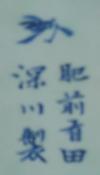 肥前有田
深川製